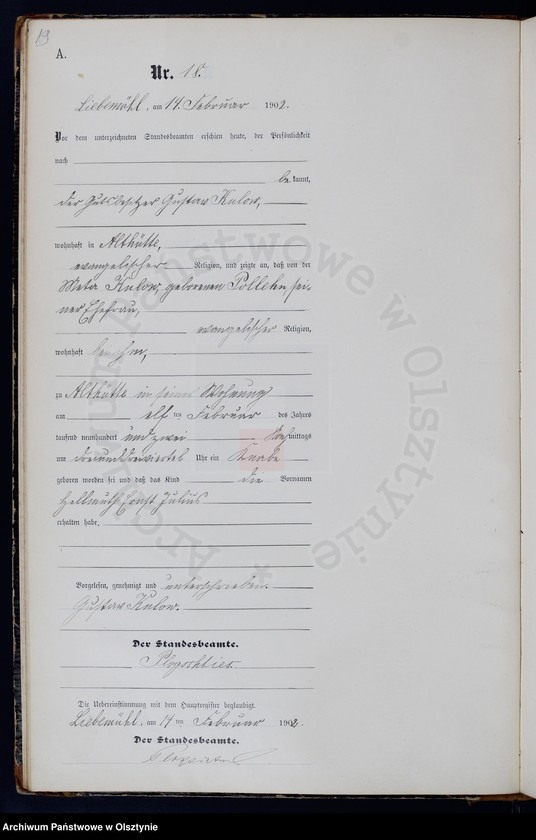 19
A.
Nr. 18.
Liebemühl, am 14. Februar 1902.
Vor dem unterzeichneten Standesbeamten erschien heute, der Persönlichkeit
nach
bekannt,
der Gutsbesitzer Gustav Kulow,
wohnhaft in Althütte,
evangelischer Religion, und zeigte an, daß von der
Meta Kulow, geborenen Pollehn, sei-
ner Ehefrau,
evangelischer Religion,
wohnhaft bei ihm,
zu Althütte in seiner Wohnung
am elf ten Februar des Jahres
tausend neunhundert und zwei mittags
um dreiundreiviertel Uhr ein Knabe
geboren worden sei und daß das Kind die Vornamen
Hellmuth Ernst Julius
erhalten habe.
Vorgelesen, genehmigt und unterschrieben.
Gustav Kulow.
Der Standesbeamte.
Die Uebereinstimmung mit dem Hauptregister beglaubigt.
Liebemühl, am 14 ten Februar 1902.
Der Standesbeamte.
Archiwum Państwowe w Olsztynie
Archiwum Państwowe w Olsztynie *